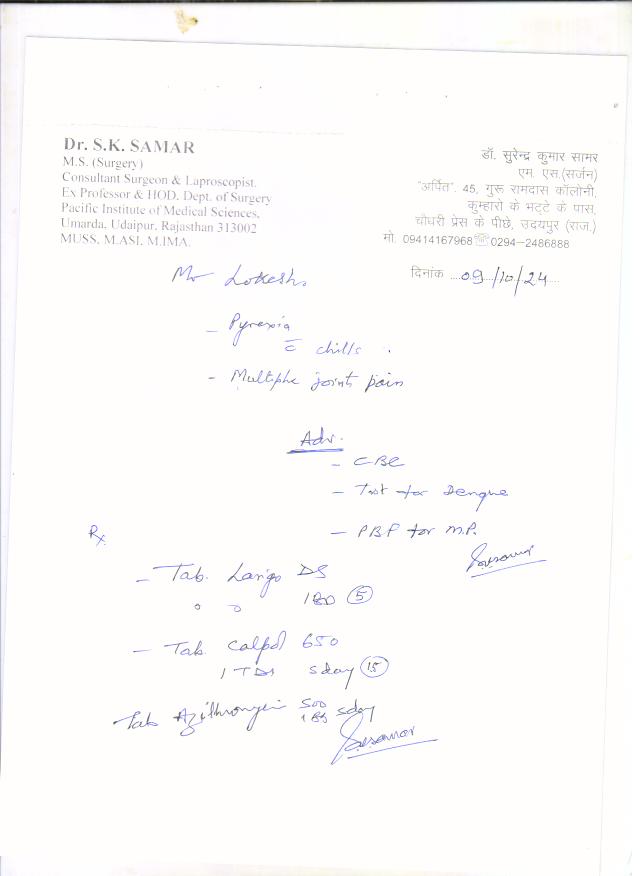 Dr. S.K. SAMAR
M.S. (Surgery)
Consultant Surgeon & Laproscopist.
Ex Professor & HOD, Dept. of Surgery
Pacific Institute of Medical Sciences,
Umarda, Udaipur, Rajasthan 313002
MUSS, M.ASI, M.IMA.
डॉ. सुरेन्द्र कुमार सामर
एम. एस.(सर्जन)
"अर्पित", 45, गुरू रामदास कॉलोनी,
कुम्हारो के भट्टे के पास,
चौधरी प्रेस के पीछे, उदयपुर (राज.)
मो. 09414167968☏0294-2486888
दिनांक ....09/10/24....
Mr Lokesh.
- Pyrexia
c̄ chills .
- Multiple joints pain
Adv.
- CBC
- Test for Dengue
- PBF for M.P.
Rx
- Tab. Larigo DS
1 BD (5)
- Tab. Calpol 650
1 TDS 5day (15)
Tab 500
5day